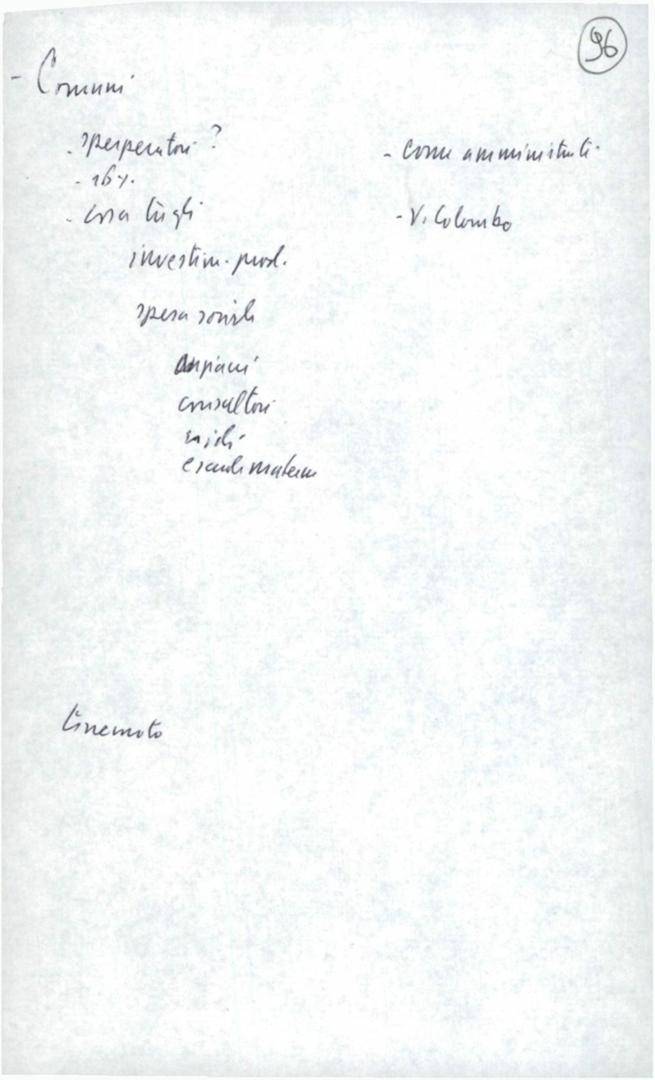 96
- Comuni
- sperperatori ?
- 16%.
- cosa tagli
investim. prod.
spesa sociale
anziani
consultori
asili
e scuole materne
- come amministrati
- V. Colombo
terremoto